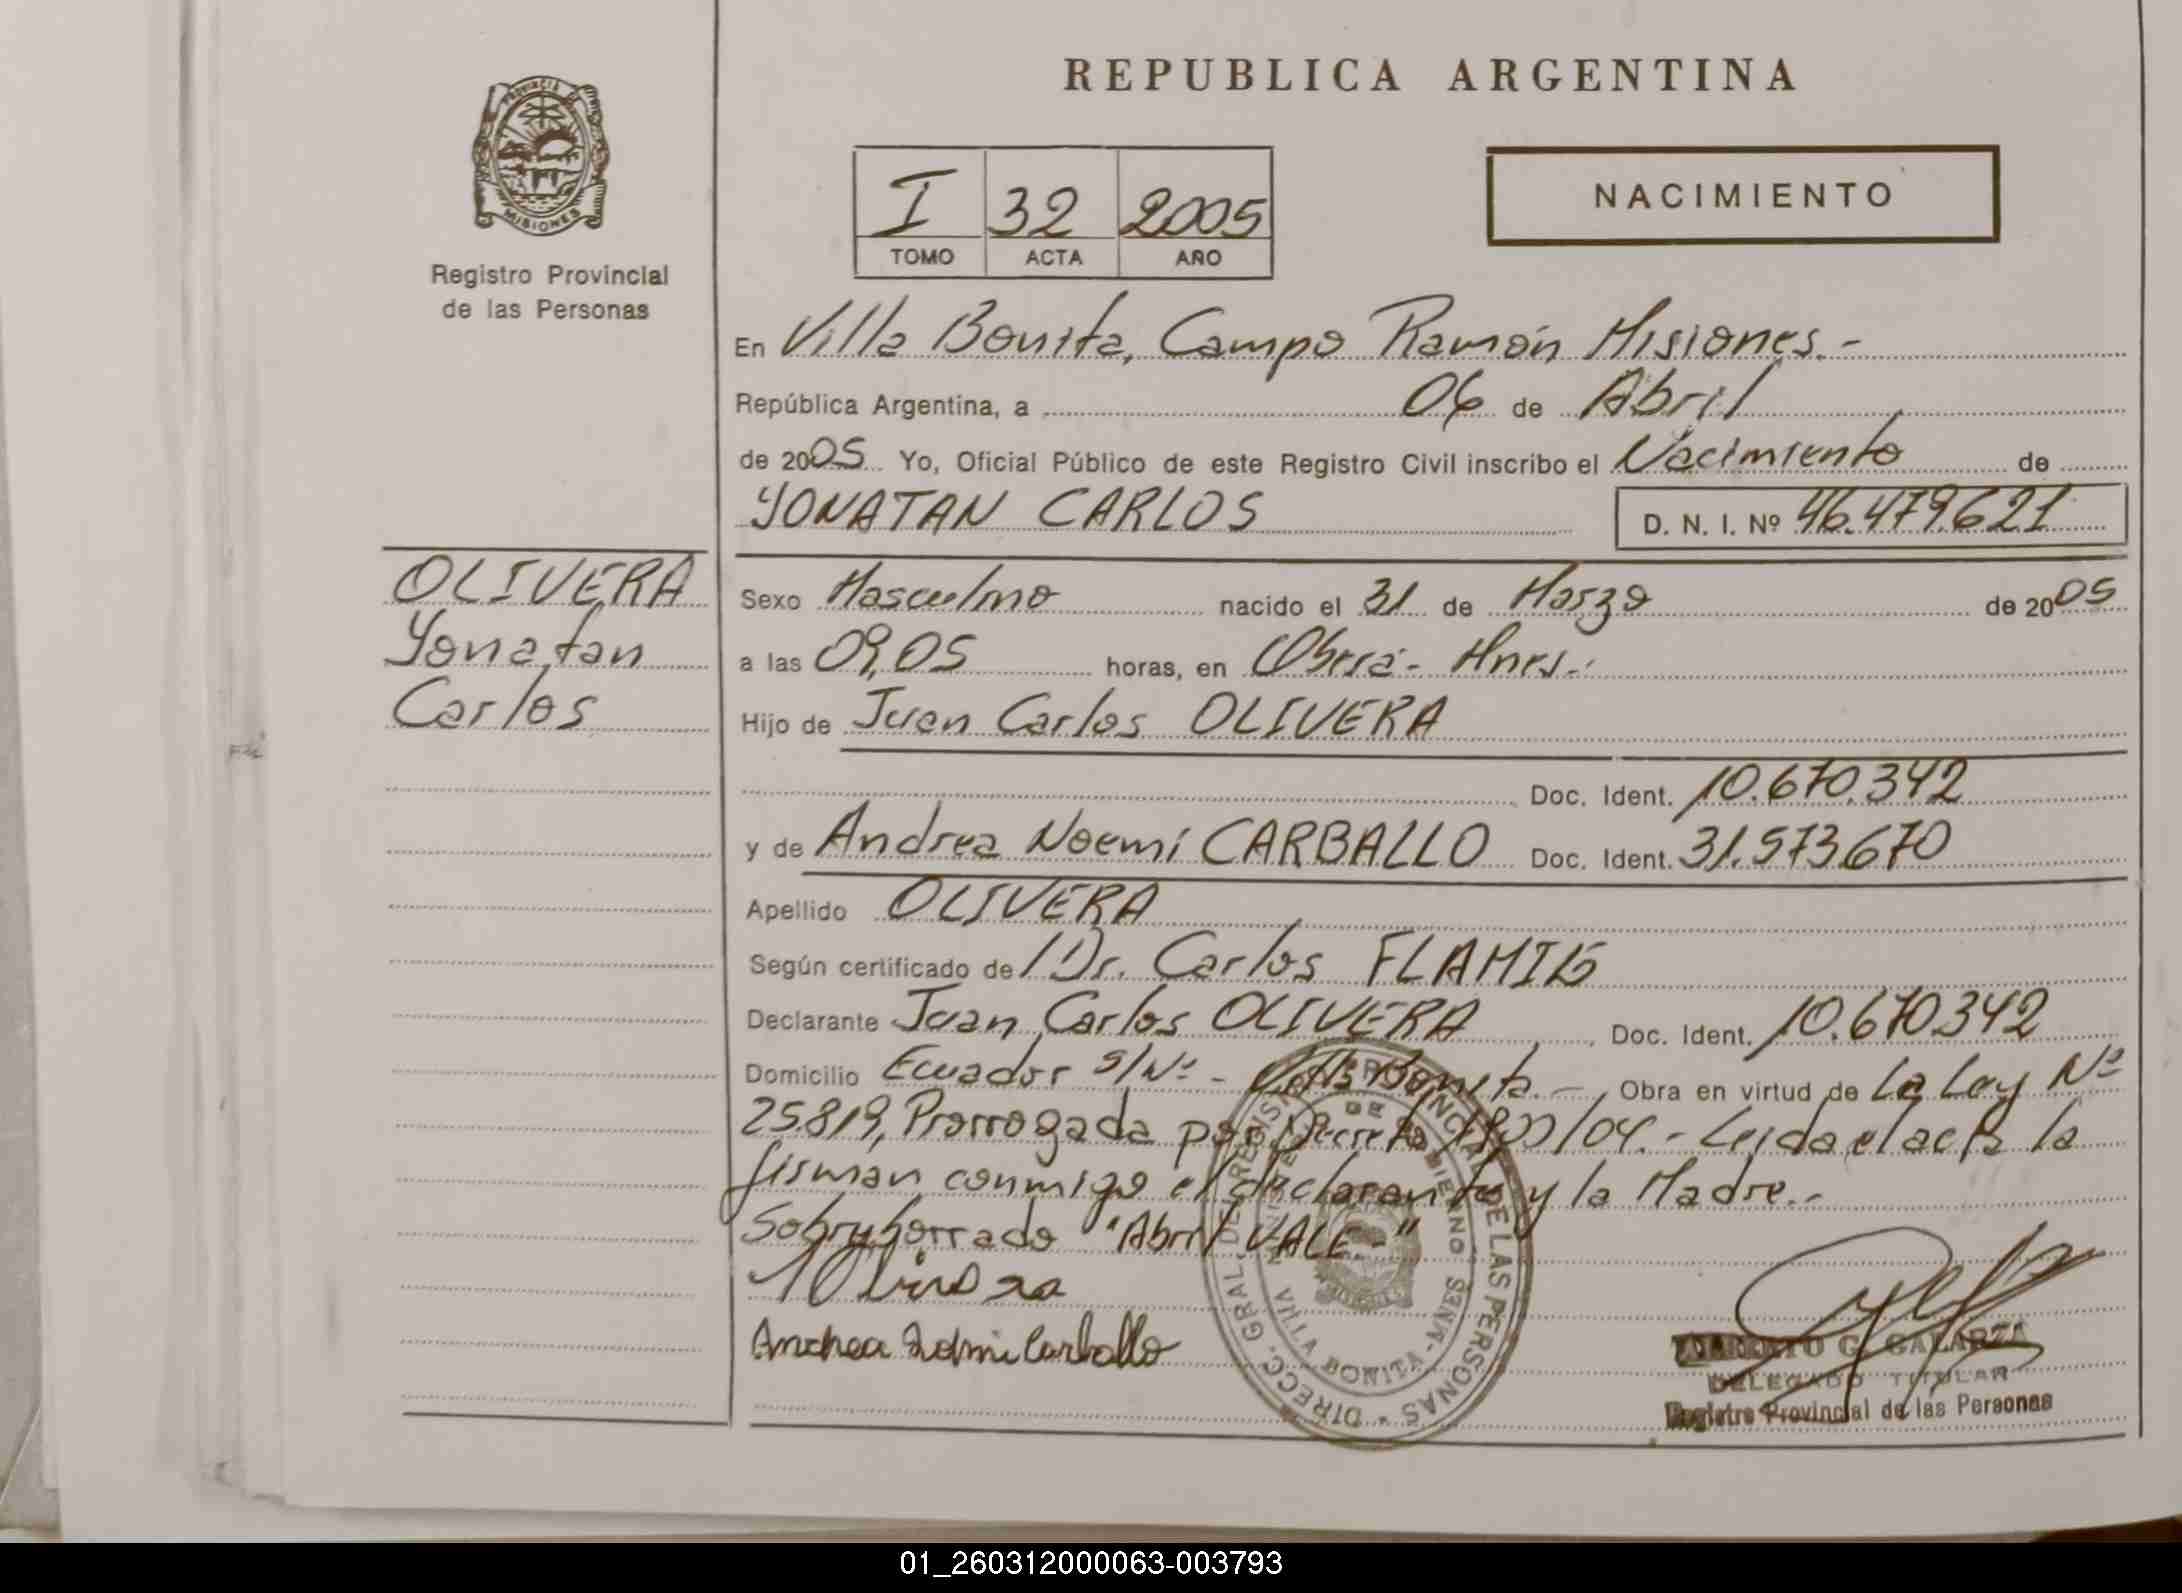 REPUBLICA ARGENTINA
PROVINCIA DE MISIONES
Registro Provincial
de las Personas
I 32 2005
TOMO ACTA AÑO
NACIMIENTO
En Villa Bonita, Campo Ramón Misiones.-
República Argentina, a 06 de Abril
de 2005 Yo, Oficial Público de este Registro Civil inscribo el Nacimiento de
YONATAN CARLOS D. N. I. Nº 46.479.621
OLIVERA
Yonatan
Carlos
Sexo Masculino nacido el 31 de Marzo de 2005
a las 09,05 horas, en Oberá - Mnes.-
Hijo de Juan Carlos OLIVERA
Doc. Ident. 10.670.342
y de Andrea Noemí CARBALLO Doc. Ident. 31.573.670
Apellido OLIVERA
Según certificado de Dr. Carlos
Declarante Juan Carlos OLIVERA Doc. Ident. 10.670.342
Domicilio Ecuador s/Nº - Villa Bonita.- Obra en virtud de La Ley Nº
25.819, Prorrogada por Decreto /04.- Leida el acta la
firman conmigo el declarante y la Madre.-
Sobreborrado "Abril VALE.-"
Olivera
Andrea Noemi Carballo
DIRECC. GRAL. DEL REGISTRO PROVINCIAL DE LAS PERSONAS
MINISTERIO DE GOBIERNO
VILLA BONITA - MNES
G. GALARZA
DELEGADO TITULAR
Registro Provincial de las Personas
01_260312000063-003793